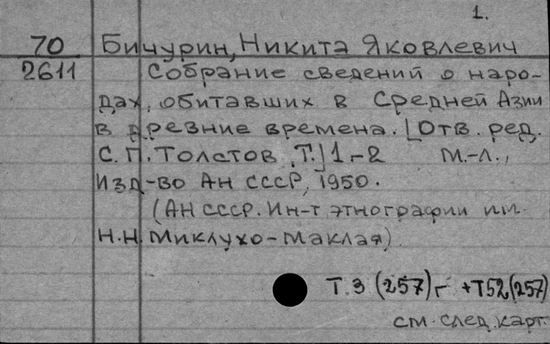 1.
70 Бичурин, Никита Яковлевич
2611 Собрание сведений о наро-
дах, обитавших в Средней Азии
в древние времена. [Отв. ред.
С. П. Толстов. Т.] 1-2 М.-Л.,
Изд-во АН СССР, 1950.
(АН СССР. Ин-т этнографии им.
Н.Н. Миклухо-Маклая).
Т.3 (257)г +Т52(257)
см. след. карт.